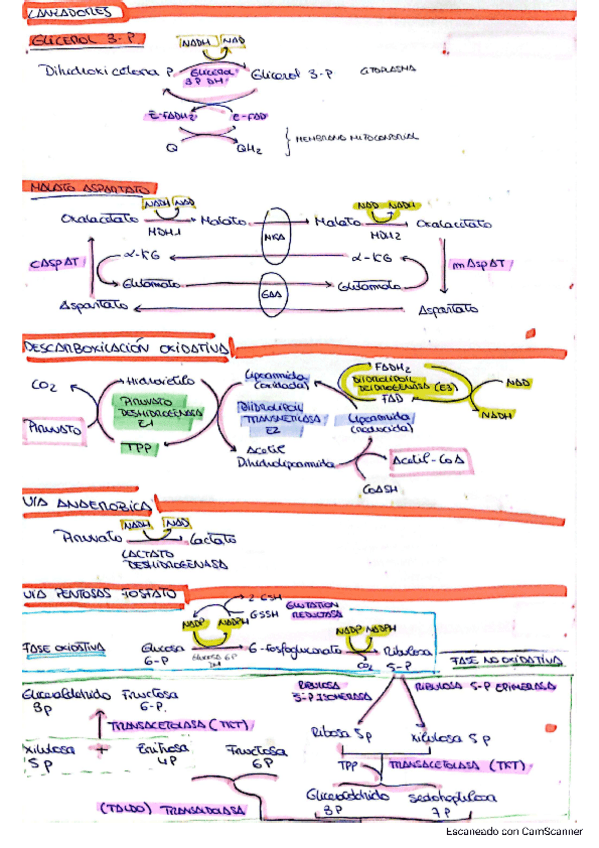 LANZADERAS
GLICEROL 3-P
NADH NAD
Dihidroxicetona P Glicerol 3P DH Glicerol 3-P CITOPLASMA
E-FADH2 E-FAD
Q QH2 MEMBRANA MITOCONDRIAL
MALATO ASPARTATO
NADH NAD NAD NADH
Oxalacetato Malato Malato Oxalacetato
MDH1 MKA MDH2
cASpAT α-KG α-KG mASpAT
Glutamato GAA Glutamato
Aspartato Aspartato
DESCARBOXILACIÓN OXIDATIVA
CO2 Hidroxietilo Lipoamida (oxidada) FADH2
PIRUVATO DESHIDROGENASA E1
DIIDROLIPOIL TRANSACETILASA E2
DIIDROLIPOIL DEIDROGENASA (E3) NAD
FAD NADH
PIRUVATO TPP Lipoamida (reducida)
Acetil Dihidrolipoamida Acetil-CoA
CoASH
VIA ANAEROBICA
NADH NAD
Piruvato Lactato
LACTATO DESHIDROGENASA
VIA PENTOSAS FOSFATO
2 GSH
GSSH GLUTATION REDUCTASA
NADP NADPH NADP NADPH
FASE OXIDATIVA Glucosa 6-P Glucosa 6P DH 6-Fosfogluconato CO2 Ribulosa 5-P
FASE NO OXIDATIVA
Gliceraldehido 3P Fructosa 6-P
RIBULOSA 5-P ISOMERASA RIBULOSA 5-P EPIMERASA
TRANSACETOLASA (TKT)
Ribosa 5P Xilulosa 5P
Xilulosa 5P + Eritrosa 4P Fructosa 6P
TPP TRANSACETOLASA (TKT)
Gliceraldehido 3P Sedoheptulosa 7P
(TALDO) TRANSALDOLASA
Escaneado con CamScanner